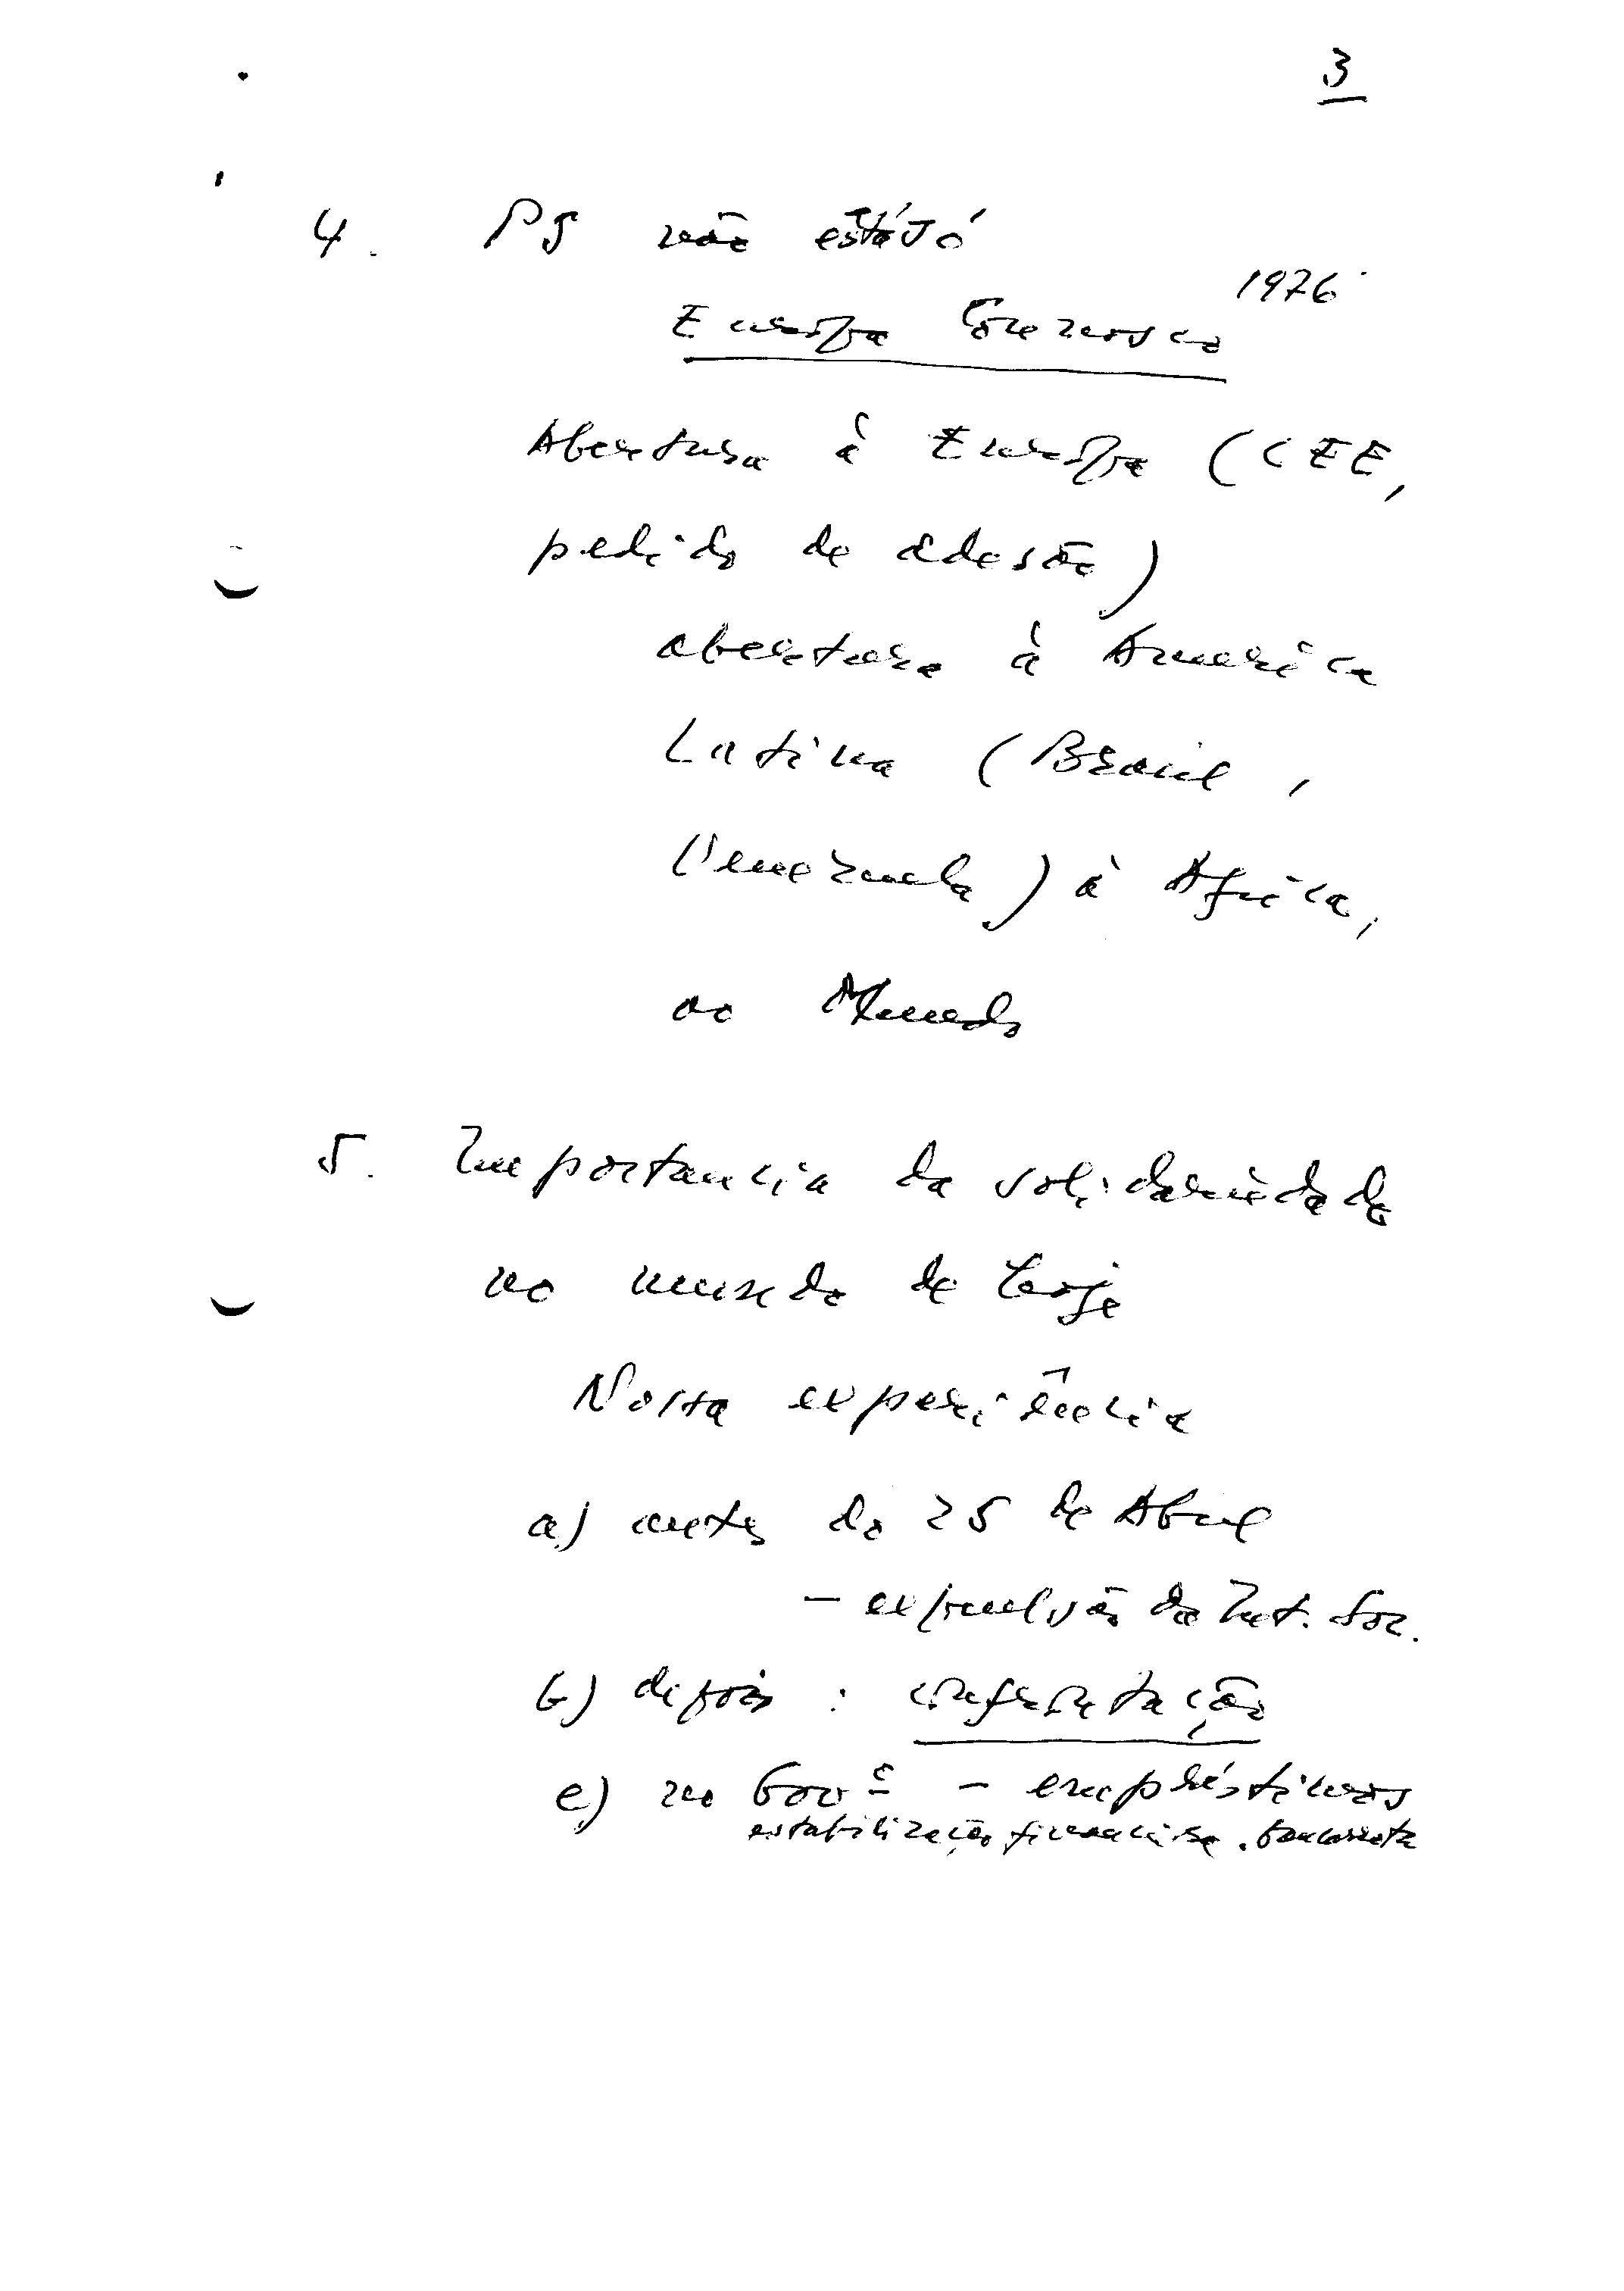 3
4. PS não está só
1976
Europa Connosco
Abertura à Europa (CEE,
pedido de adesão)
abertura à América
Latina (Brasil,
Venezuela) à Africa,
ao Mundo
5. Importancia da solidariedade
no mundo de hoje
Nossa experiência
a) antes do 25 de Abril
- expulsão da Int. Soc.
b) depois :
c) no Govº - empréstimos
estabilização financeira. bancarrota